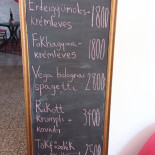 Erdeigyümölcs-
krémleves 1800
Fokhagyma-
krémleves 1800
Vega bolognai
spagetti 2800
Rakott
krumpli + 3400
kovászos
Tökfőzelék
2500